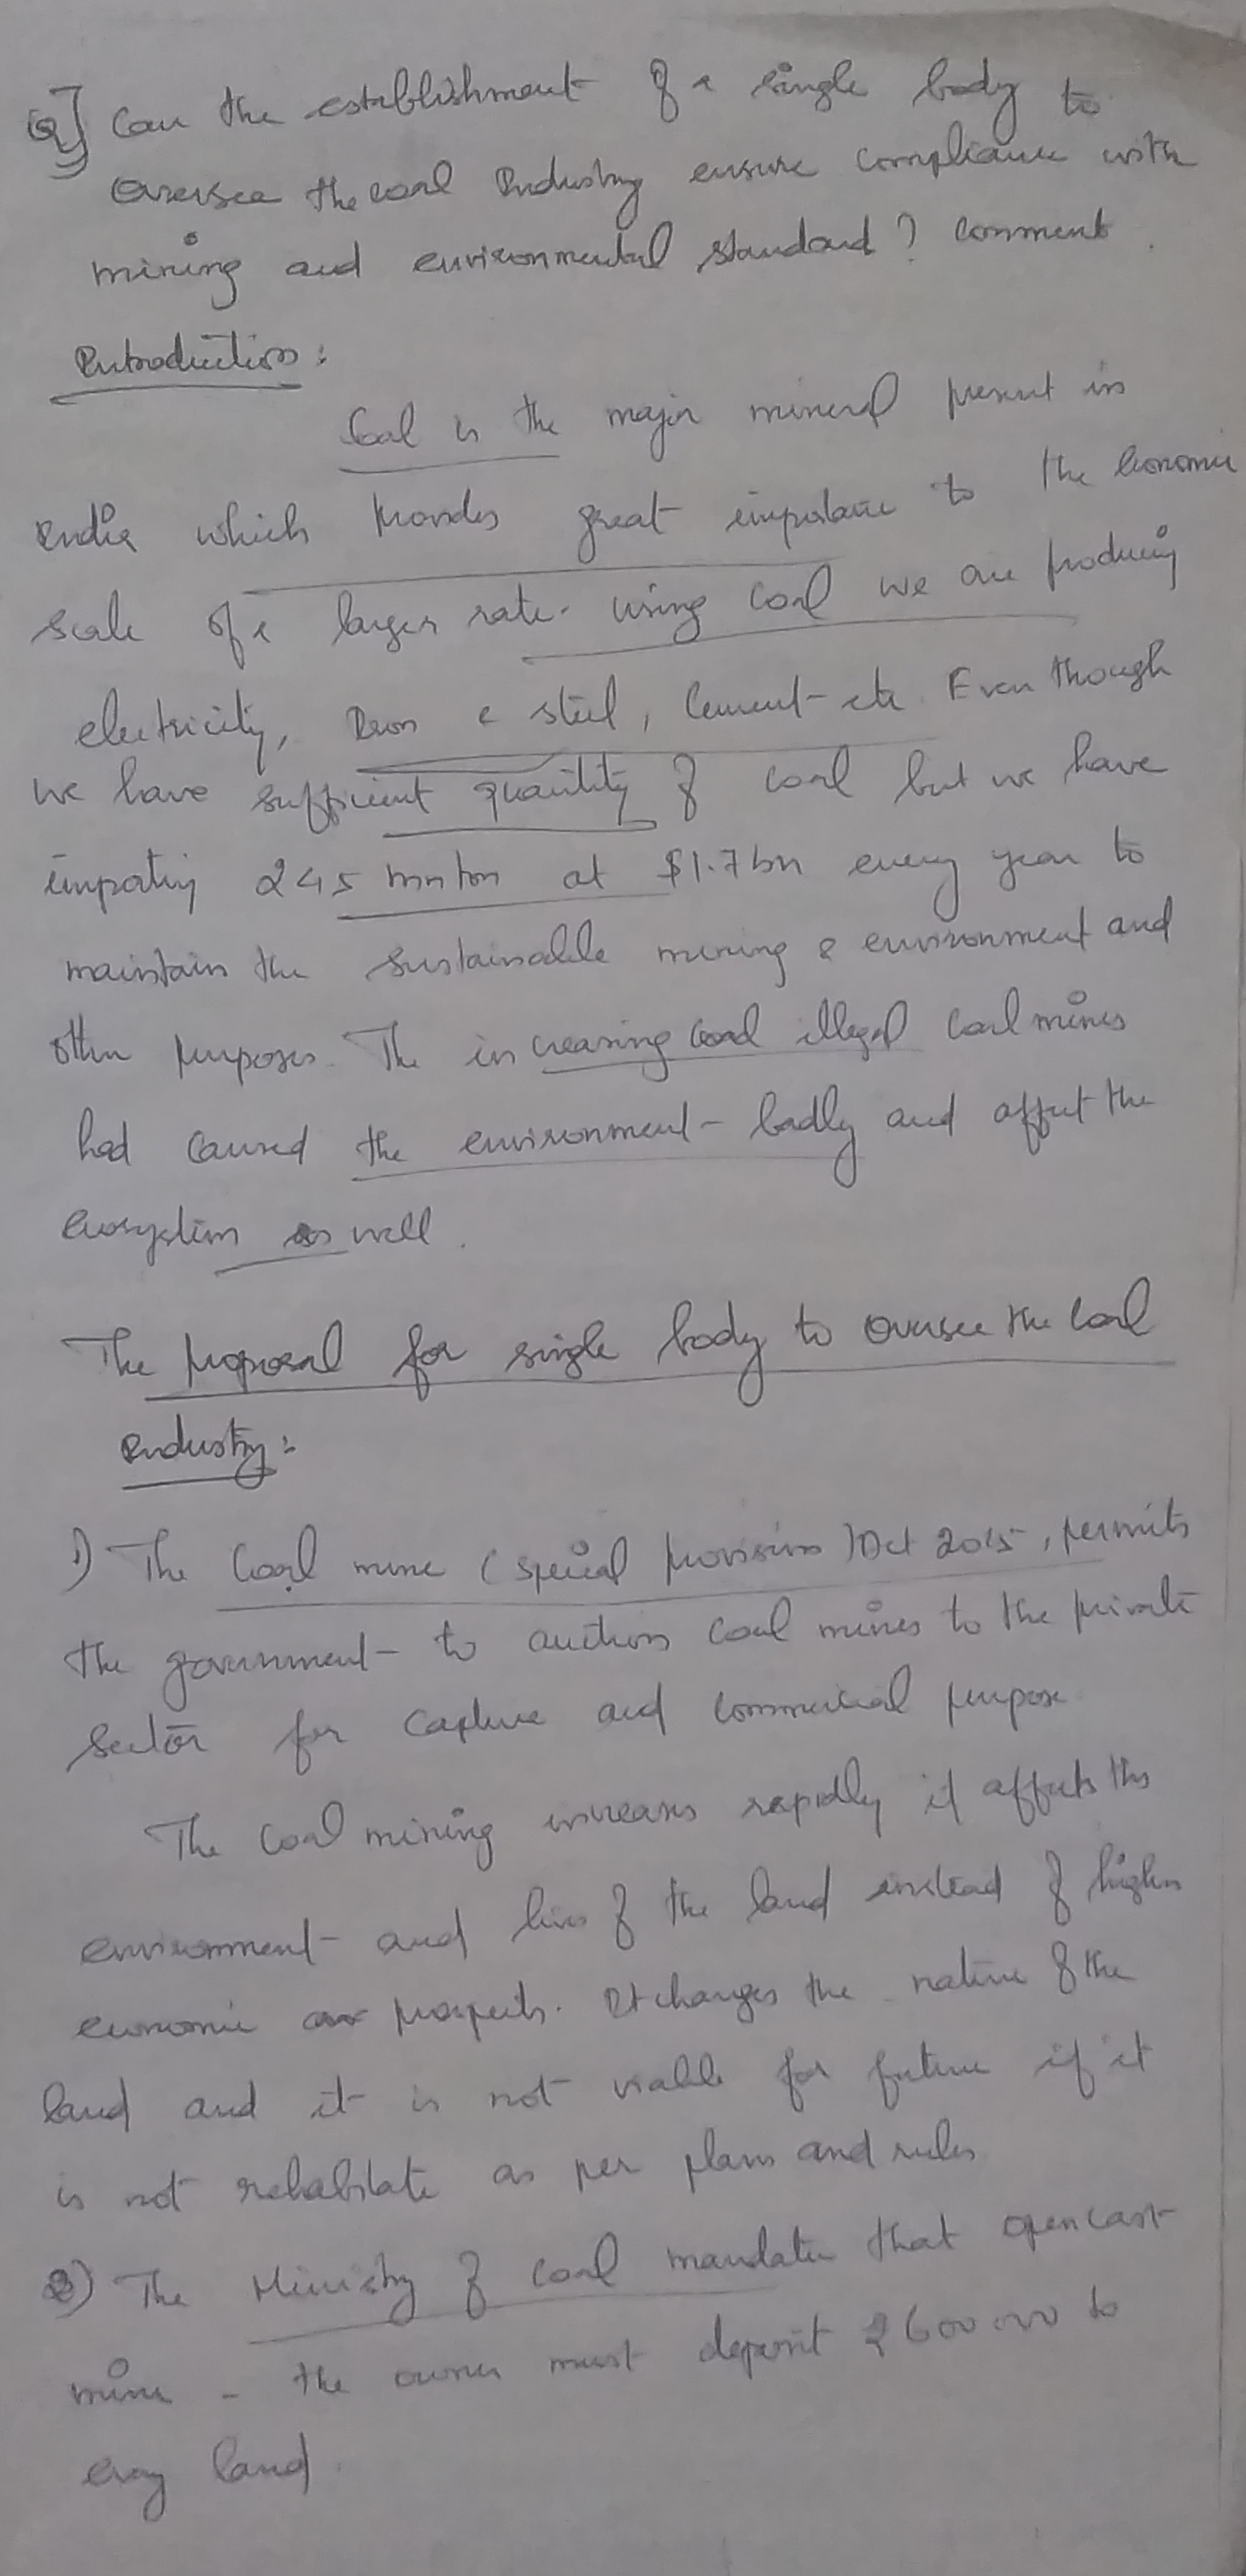 Q] Can the establishment of a single body to
oversee the coal Industry ensure compliance with
mining and environmental standard? Comment.
Introduction:
Coal is the major mineral present in
India which provides great importance to the Economic
scale of a larger rate. Using Coal we are producing
electricity, Iron & steel, Cement etc. Even though
we have sufficient quantity of coal but we have
importing 245 mn ton at $1.7bn every year to
maintain the sustainable mining & environment and
other purposes. The increasing coal illegal coal mines
had caused the environment badly and affect the
ecosystem as well.
The proposal for single body to oversee the coal
Industry:
1) The Coal mine (special provisions) Act 2015, permits
the government to auction coal mines to the private
sector for captive and commercial purpose.
The coal mining increases rapidly it affects the
environment and lives of the land instead of higher
economic prospects. It changes the nature of the
land and it is not viable for future if it
is not rehabilitate as per plans and rules
2) The Ministry of coal mandates that opencast
mine - the owner must deposit ₹600000 to
every land.